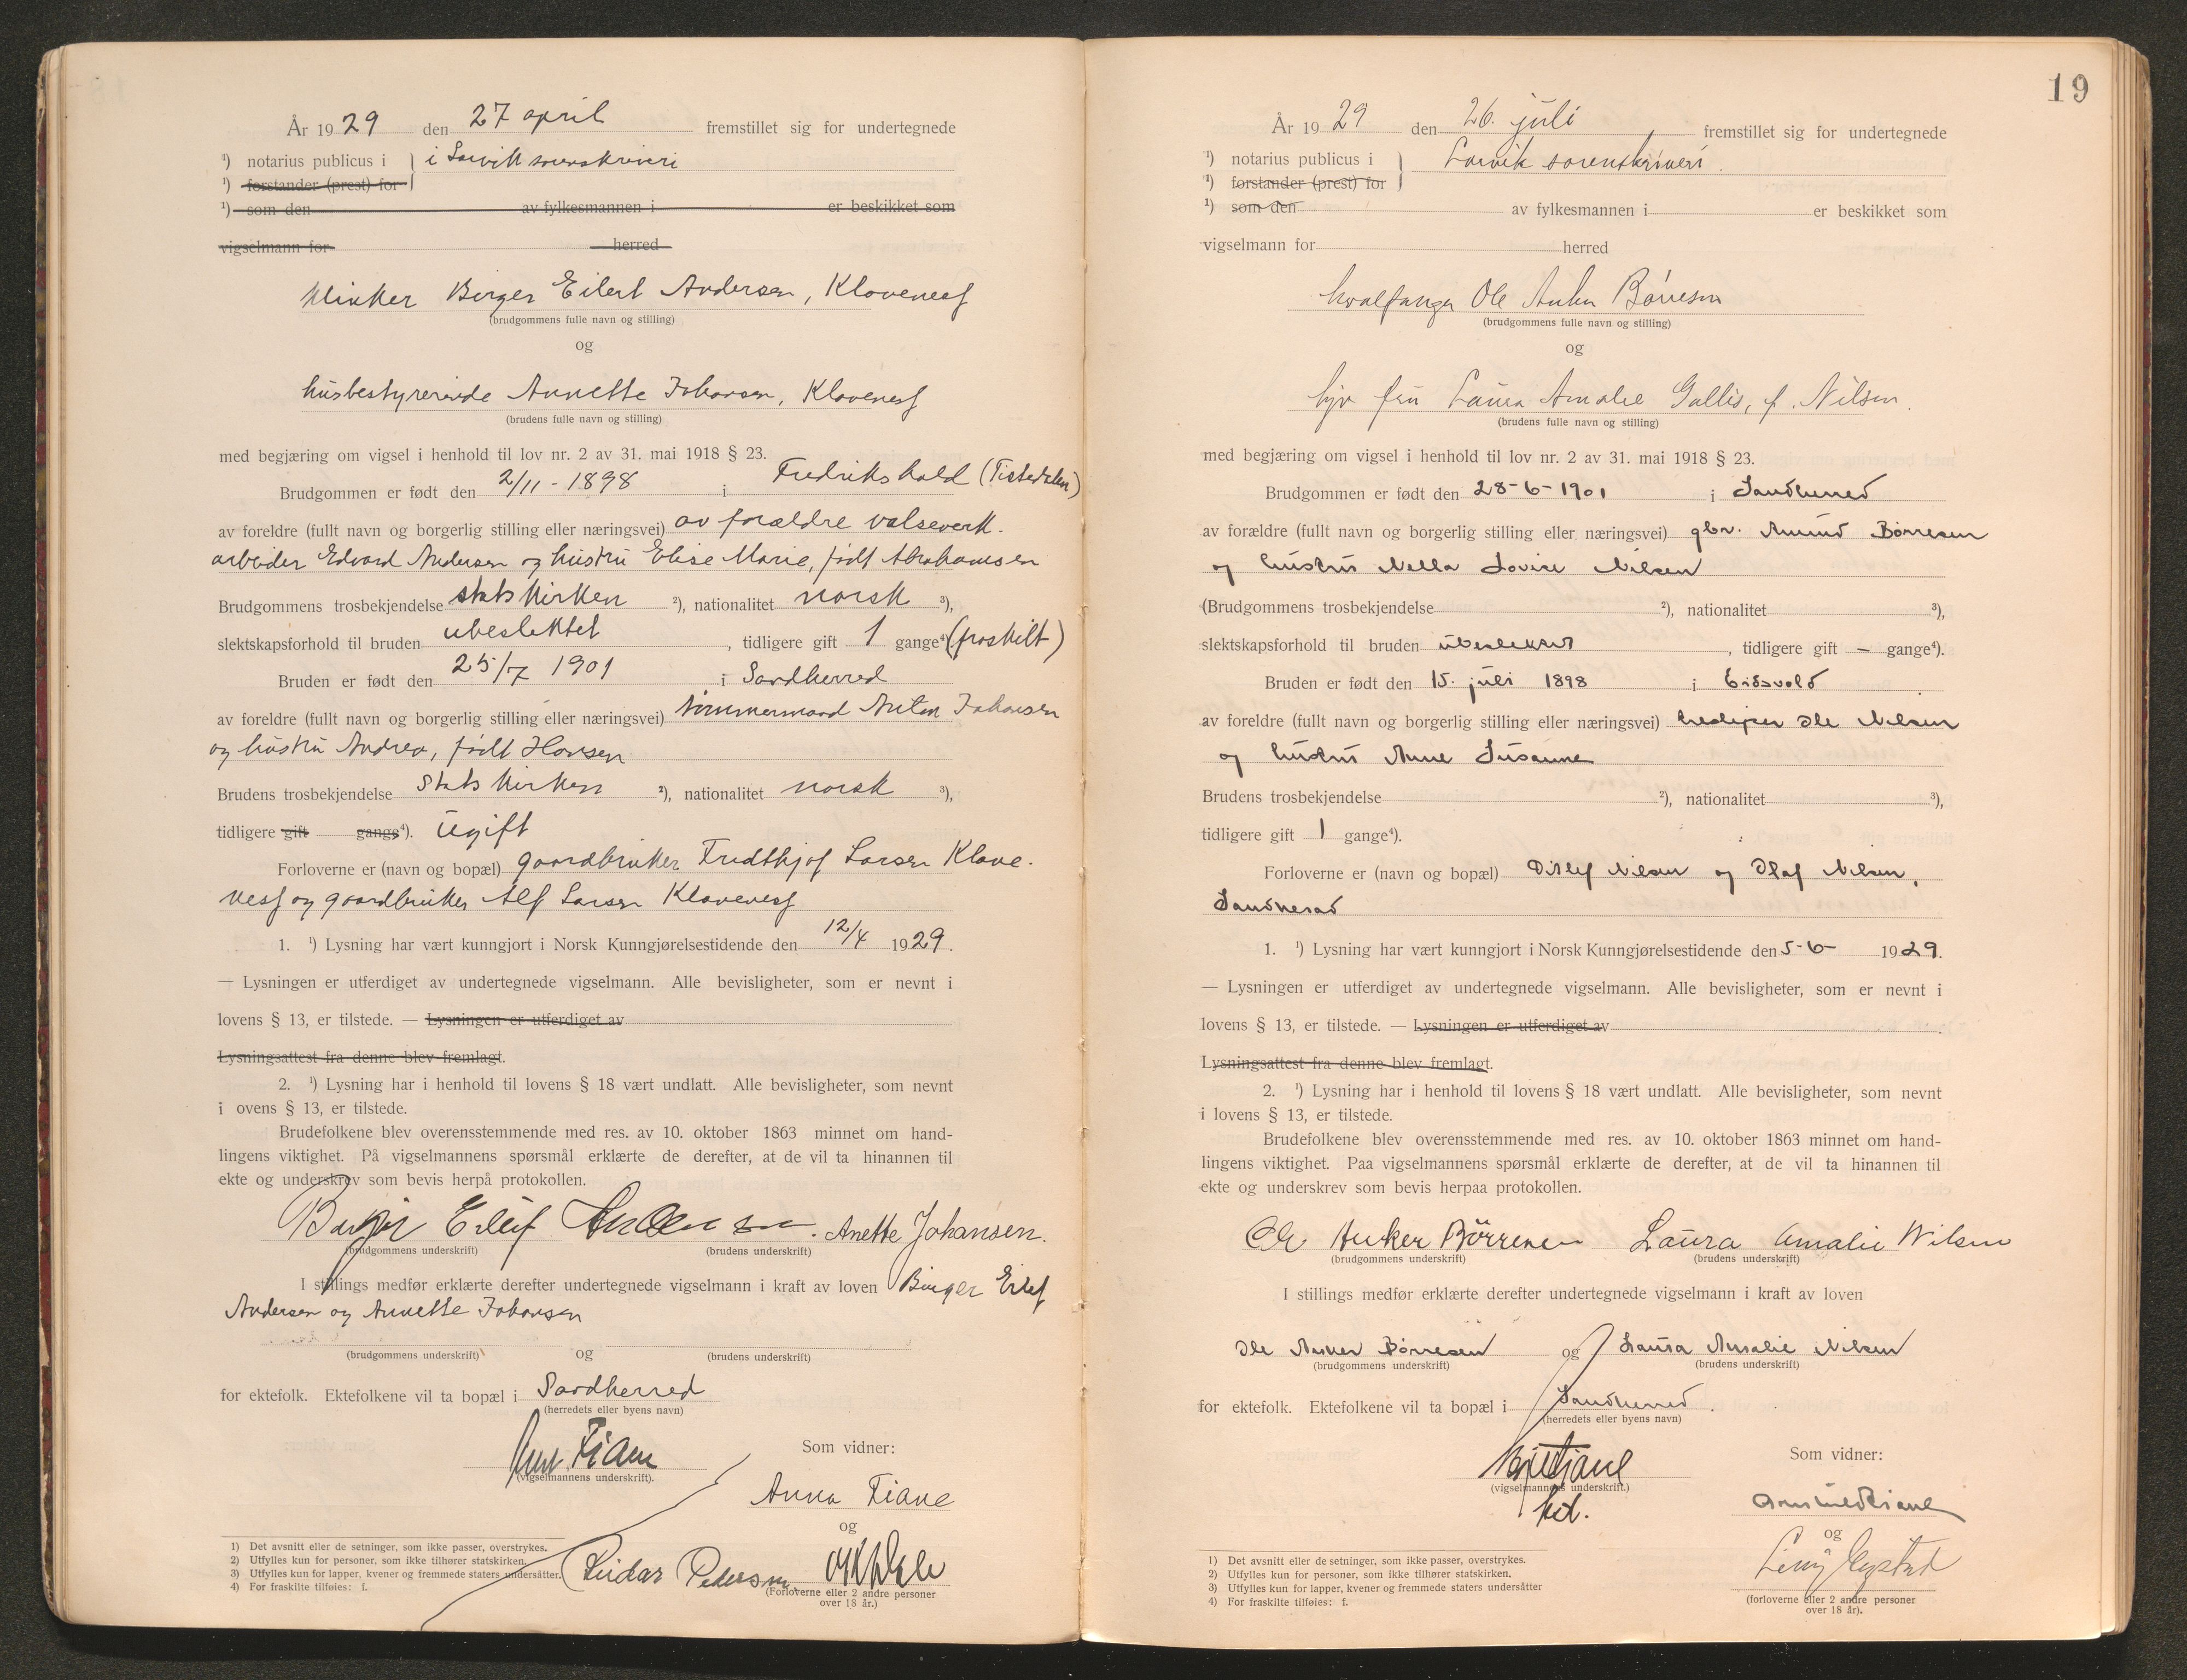 År 1929 den 27 april fremstillet sig for undertegnede
¹) notarius publicus i } i Larvik sorenskriveri
¹) forstander (prest) for
¹) som den av fylkesmannen i er beskikket som
vigselmann for herred
klinker Birger Eilert Andersen, Klavenesf
(brudgommens fulle navn og stilling)
og
husbestyrerinde Annette Johansen, Klavenesf
(brudens fulle navn og stilling)
med begjæring om vigsel i henhold til lov nr. 2 av 31. mai 1918 § 23.
Brudgommen er født den 2/11 - 1898 i Fredrikshald (Tistedalen)
av foreldre (fullt navn og borgerlig stilling eller næringsvei) av forældre valseverk.
arbeider Edvard Andersen og hustru Elise Marie, født Abrahamsen
Brudgommens trosbekjendelse statskirken ²), nationalitet norsk ³),
slektskapsforhold til bruden ubeslektet, tidligere gift 1 gange⁴) (fraskilt)
Bruden er født den 25/7 1901 i Sandherred
av foreldre (fullt navn og borgerlig stilling eller næringsvei) tømmermand Anton Johansen
og hustru Andrea, født Hansen
Brudens trosbekjendelse Statskirken ²), nationalitet norsk ³),
tidligere gift gange⁴). Ugift
Forloverne er (navn og bopæl) gaardbruker Fredthjof Larsen Klave-
nesf og gaardbruker Alf Larsen Klavenesf
1. ¹) Lysning har vært kunngjort i Norsk Kunngjørelsestidende den 12/4 1929.
— Lysningen er utferdiget av undertegnede vigselmann. Alle bevisligheter, som er nevnt i
lovens § 13, er tilstede. — Lysningen er utferdiget av
Lysningsattest fra denne blev fremlagt.
2. ¹) Lysning har i henhold til lovens § 18 vært undlatt. Alle bevisligheter, som nevnt
i ovens § 13, er tilstede.
Brudefolkene blev overensstemmende med res. av 10. oktober 1863 minnet om hand-
lingens viktighet. På vigselmannens spørsmål erklærte de derefter, at de vil ta hinannen til
ekte og underskrev som bevis herpå protokollen.
Birger Eilef Andersen. Anette Johansen.
(brudgommens underskrift) (brudens underskrift)
I stillings medfør erklærte derefter undertegnede vigselmann i kraft av loven Birger Eilef
Andersen og Annette Johansen
og
(brudgommens underskrift) (brudens underskrift)
for ektefolk. Ektefolkene vil ta bopæl i Sandherred
(herredets eller byens navn)
Fiane
(vigselmannens underskrift).
Som vidner:
Anna Fiane
og
Reidar Pedersen
(Forloverne eller 2 andre personer
over 18 år.)
1) Det avsnitt eller de setninger, som ikke passer, overstrykes.
2) Utfylles kun for personer, som ikke tilhører statskirken.
3) Utfylles kun for lapper, kvener og fremmede staters undersåtter.
4) For fraskilte tilføies: f.
19
År 1929 den 26. juli fremstillet sig for undertegnede
¹) notarius publicus i } Larvik sorenskriveri.
¹) forstander (prest) for
¹) som den av fylkesmannen i er beskikket som
vigselmann for herred
hvalfanger Ole Anker Børresen
(brudgommens fulle navn og stilling)
og
fru Laura Amalie Gallis, f. Nilsen.
(brudens fulle navn og stilling)
med begjæring om vigsel i henhold til lov nr. 2 av 31. mai 1918 § 23.
Brudgommen er født den 28-6-1901 i Sandherred
av forældre (fullt navn og borgerlig stilling eller næringsvei) gbr. Amund Børresen
og hustru Nella Lovise Nilsen
(Brudgommens trosbekjendelse ²), nationalitet ³),
slektskapsforhold til bruden ubeslektet, tidligere gift — gange⁴).
Bruden er født den 15. juli 1898 i Eidsvold
av foreldre (fullt navn og borgerlig stilling eller næringsvei) Ole Nilsen
og hustru Anne Susanne
Brudens trosbekjendelse ²), nationalitet ³),
tidligere gift 1 gange⁴).
Forloverne er (navn og bopæl) Ditlef Nilsen og Olaf Nilsen,
Sandherad
1. ¹) Lysning har vært kunngjort i Norsk Kunngjørelsestidende den 5-6- 1929.
— Lysningen er utferdiget av undertegnede vigselmann. Alle bevisligheter, som er nevnt i
lovens § 13, er tilstede. — Lysningen er utferdiget av
Lysningsattest fra denne blev fremlagt.
2. ¹) Lysning har i henhold til lovens § 18 vært undlatt. Alle bevisligheter, som nevnt
i lovens § 13, er tilstede.
Brudefolkene blev overensstemmende med res. av 10. oktober 1863 minnet om hand-
lingens viktighet. Paa vigselmannens spørsmål erklærte de derefter, at de vil ta hinannen til
ekte og underskrev som bevis herpaa protokollen.
Ole Anker Börresen Laura Amalie Nilsen
(brudgommens underskrift) (brudens underskrift)
I stillings medfør erklærte derefter undertegnede vigselmann i kraft av loven
Ole Anker Børresen og Laura Amalie Nilsen
(brudgommens underskrift) (brudens underskrift)
for ektefolk. Ektefolkene vil ta bopæl i Sandherred.
(herredets eller byens navn)
(vigselmannens underskrift.)
Som vidner:
og
(forloverne eller 2 andre personer
over 18 år).
1) Det avsnitt eller de setninger, som ikke passer, overstrykes.
2) Utfylles kun for personer, som ikke tilhører statskirken.
3) Utfylles kun for lapper, kvener og fremmede staters undersåtter
4) For fraskilte tilføies: f.